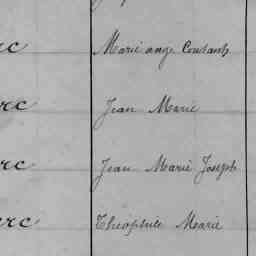 rc Marie ange Constant
rc Jean Marie
rc Jean Marie Joseph
rc Théophile Marie